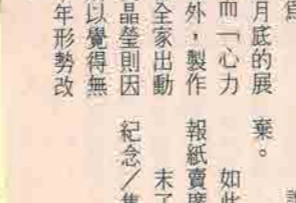 月底的展
而「心力
外，製作
全家出動
晶瑩則因
以覺得無
年形勢改
棄。
如此
報紙賣廣
末了
紀念／售